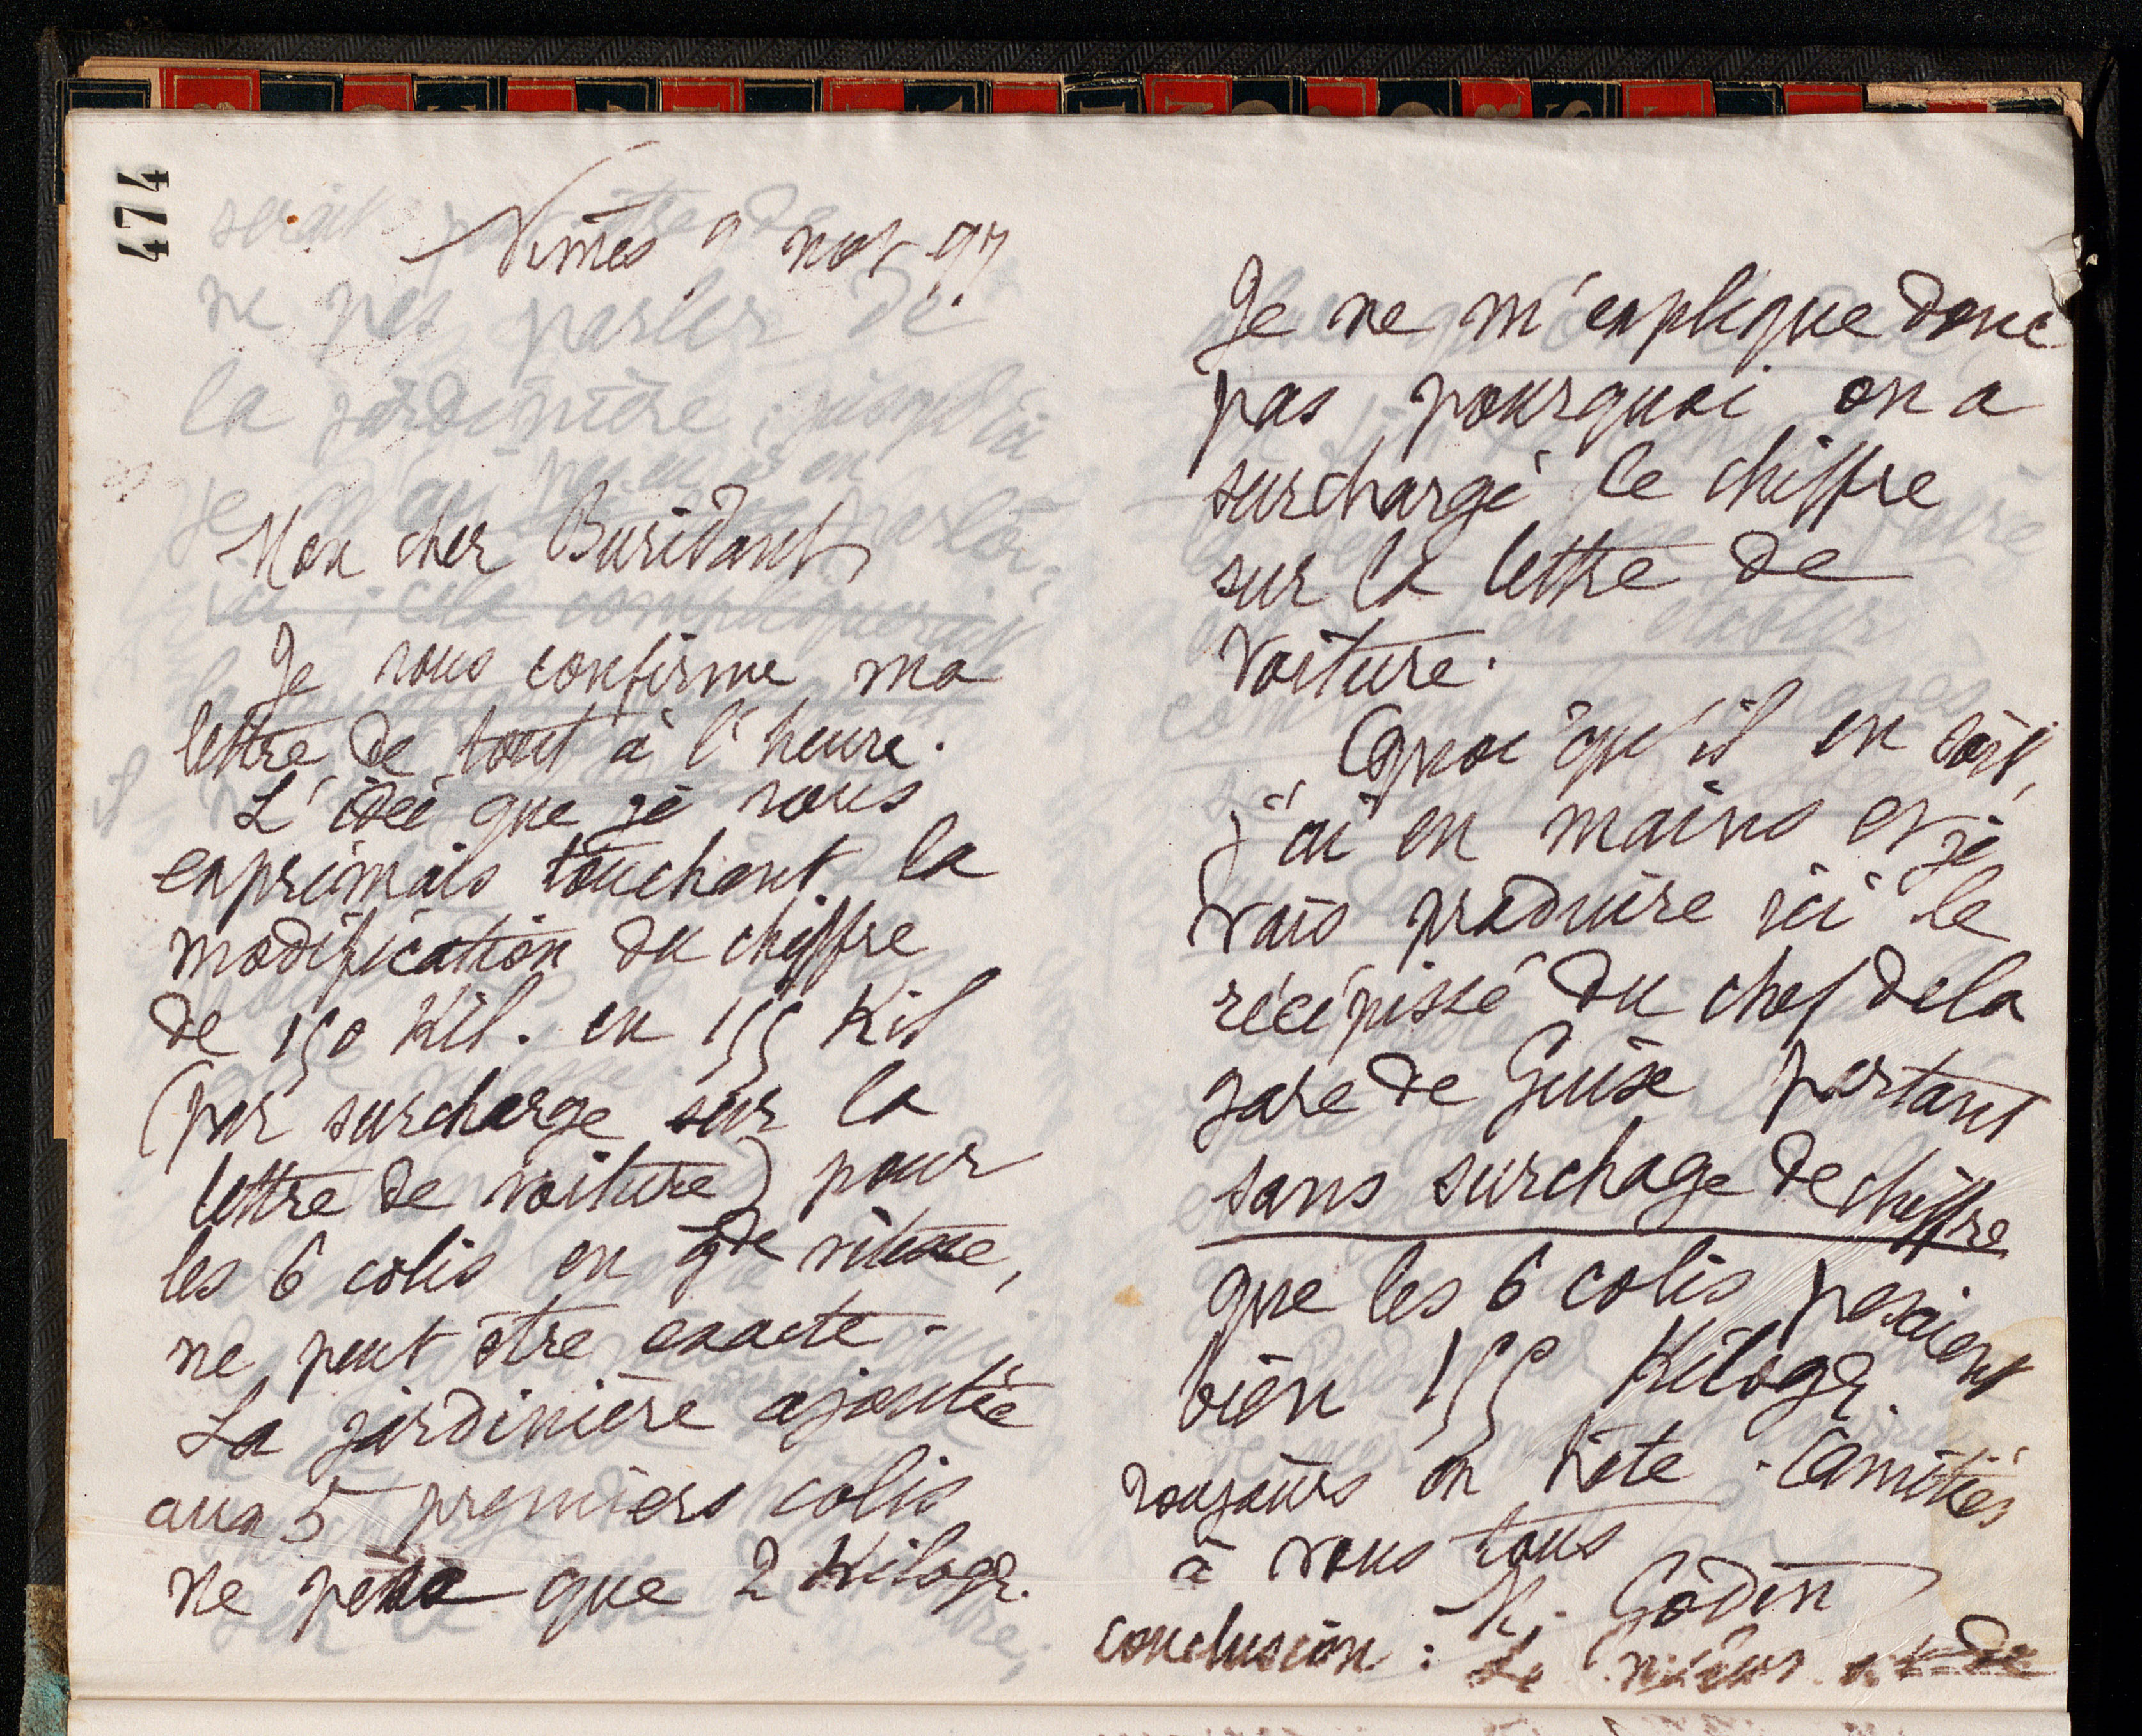 474
Nîmes 9 nov 97
Mon cher Buridant
Je vous confirme ma
lettre de tout à l'heure.
L'idée que je vous
exprimais touchant la
modification du chiffre
de 150 Kil. en 155 Kil
(par surcharge sur la
lettre de voiture) pour
les 6 colis en gde vitesse,
ne peut être exacte.
La jardinière ajoutée
aux 5 premiers colis
ne pèse que 2 Kilogr.
Je ne m'explique donc
pas pourquoi on a
surchargé le chiffre
sur la lettre de
voiture.
Quoi qu'il en soit,
j'ai en mains et je
vais produire ici le
récépissé du chef de la
gare de Guise portant
sans surchage de chiffre
que les 6 colis pesaient
bien 155 Kilogr.
toujours en hâte. amitiés
à vous tous
M. Godin
conclusion : Le mieux est de